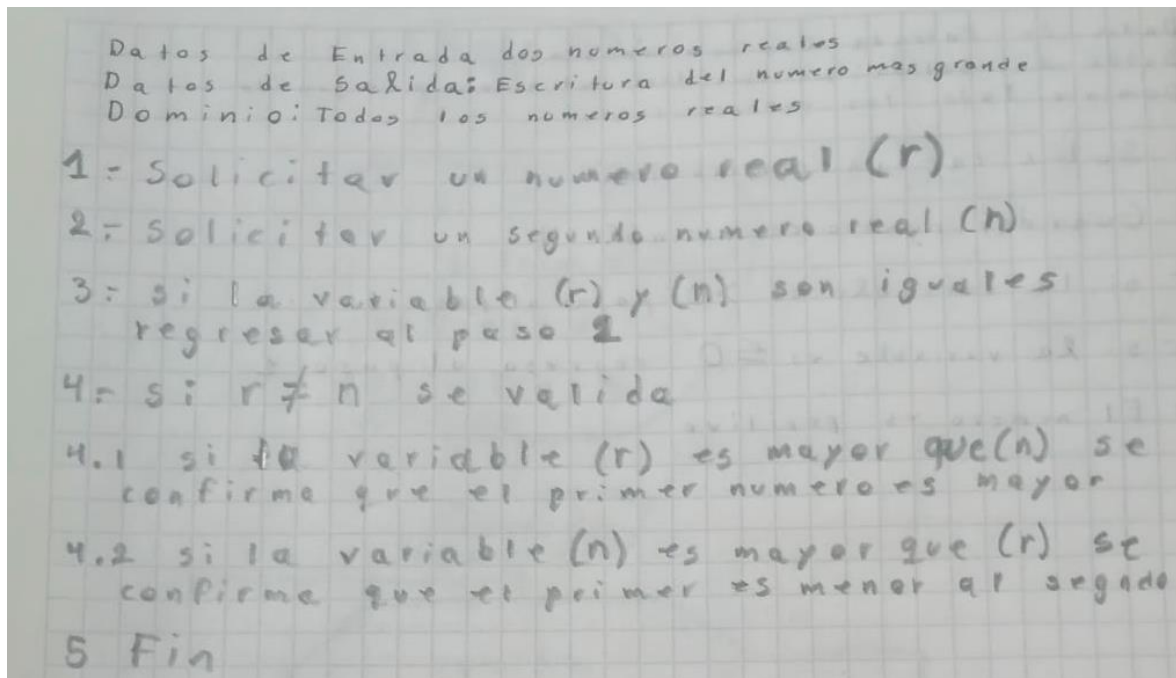 Datos de Entrada dos numeros reales
Datos de Salida: Escritura del numero mas grande
Dominio: Todos los numeros reales
1- Solicitar un numero real (r)
2- Solicitar un segundo numero real (n)
3- si la variable (r) y (n) son iguales
regresar al paso 1
4- si r ≠ n se valida
4.1 si la variable (r) es mayor que (n) se
confirma que el primer numero es mayor
4.2 si la variable (n) es mayor que (r) se
confirma que el primer es menor al segndo
5 Fin